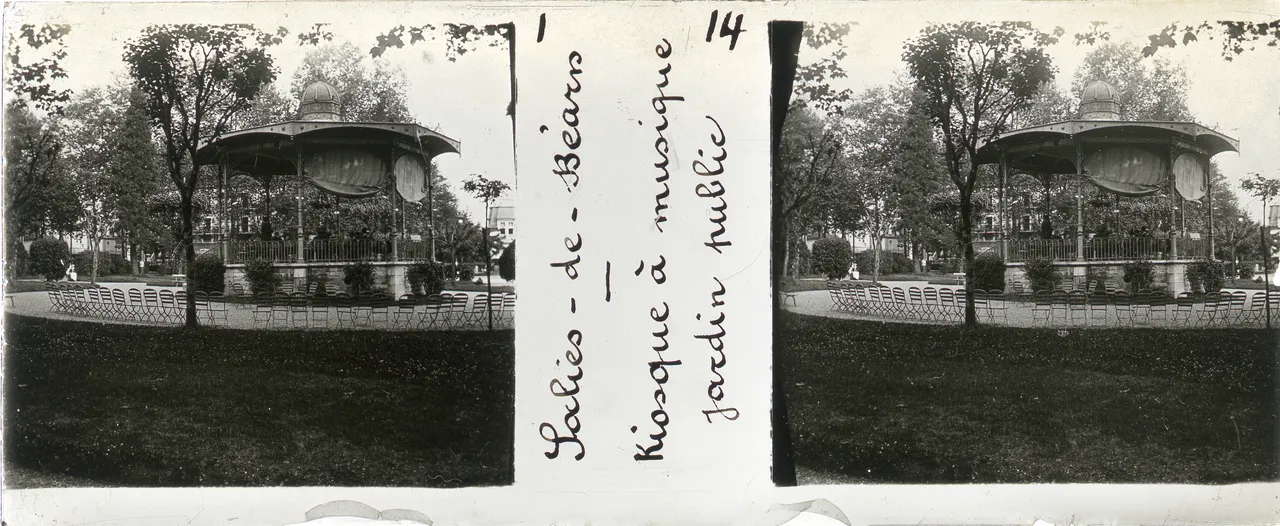 14
Salies-de-Béarn
Kiosque à musique
jardin public